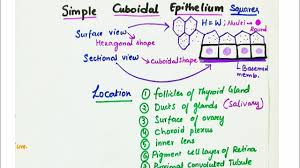 Simple Cuboidal Epithelium Squares
Surface view
Hexagonal shape
H = W; Nuclei → Round
Sectional view → Cuboidal shape
Basement memb.
Location
① Follicles of Thyroid Gland
② Ducts of glands (Salivary)
③ Surface of ovary
④ Choroid plexus
⑤ inner lens
⑥ Pigment cell layer of Retina
Proximal Convoluted Tubule